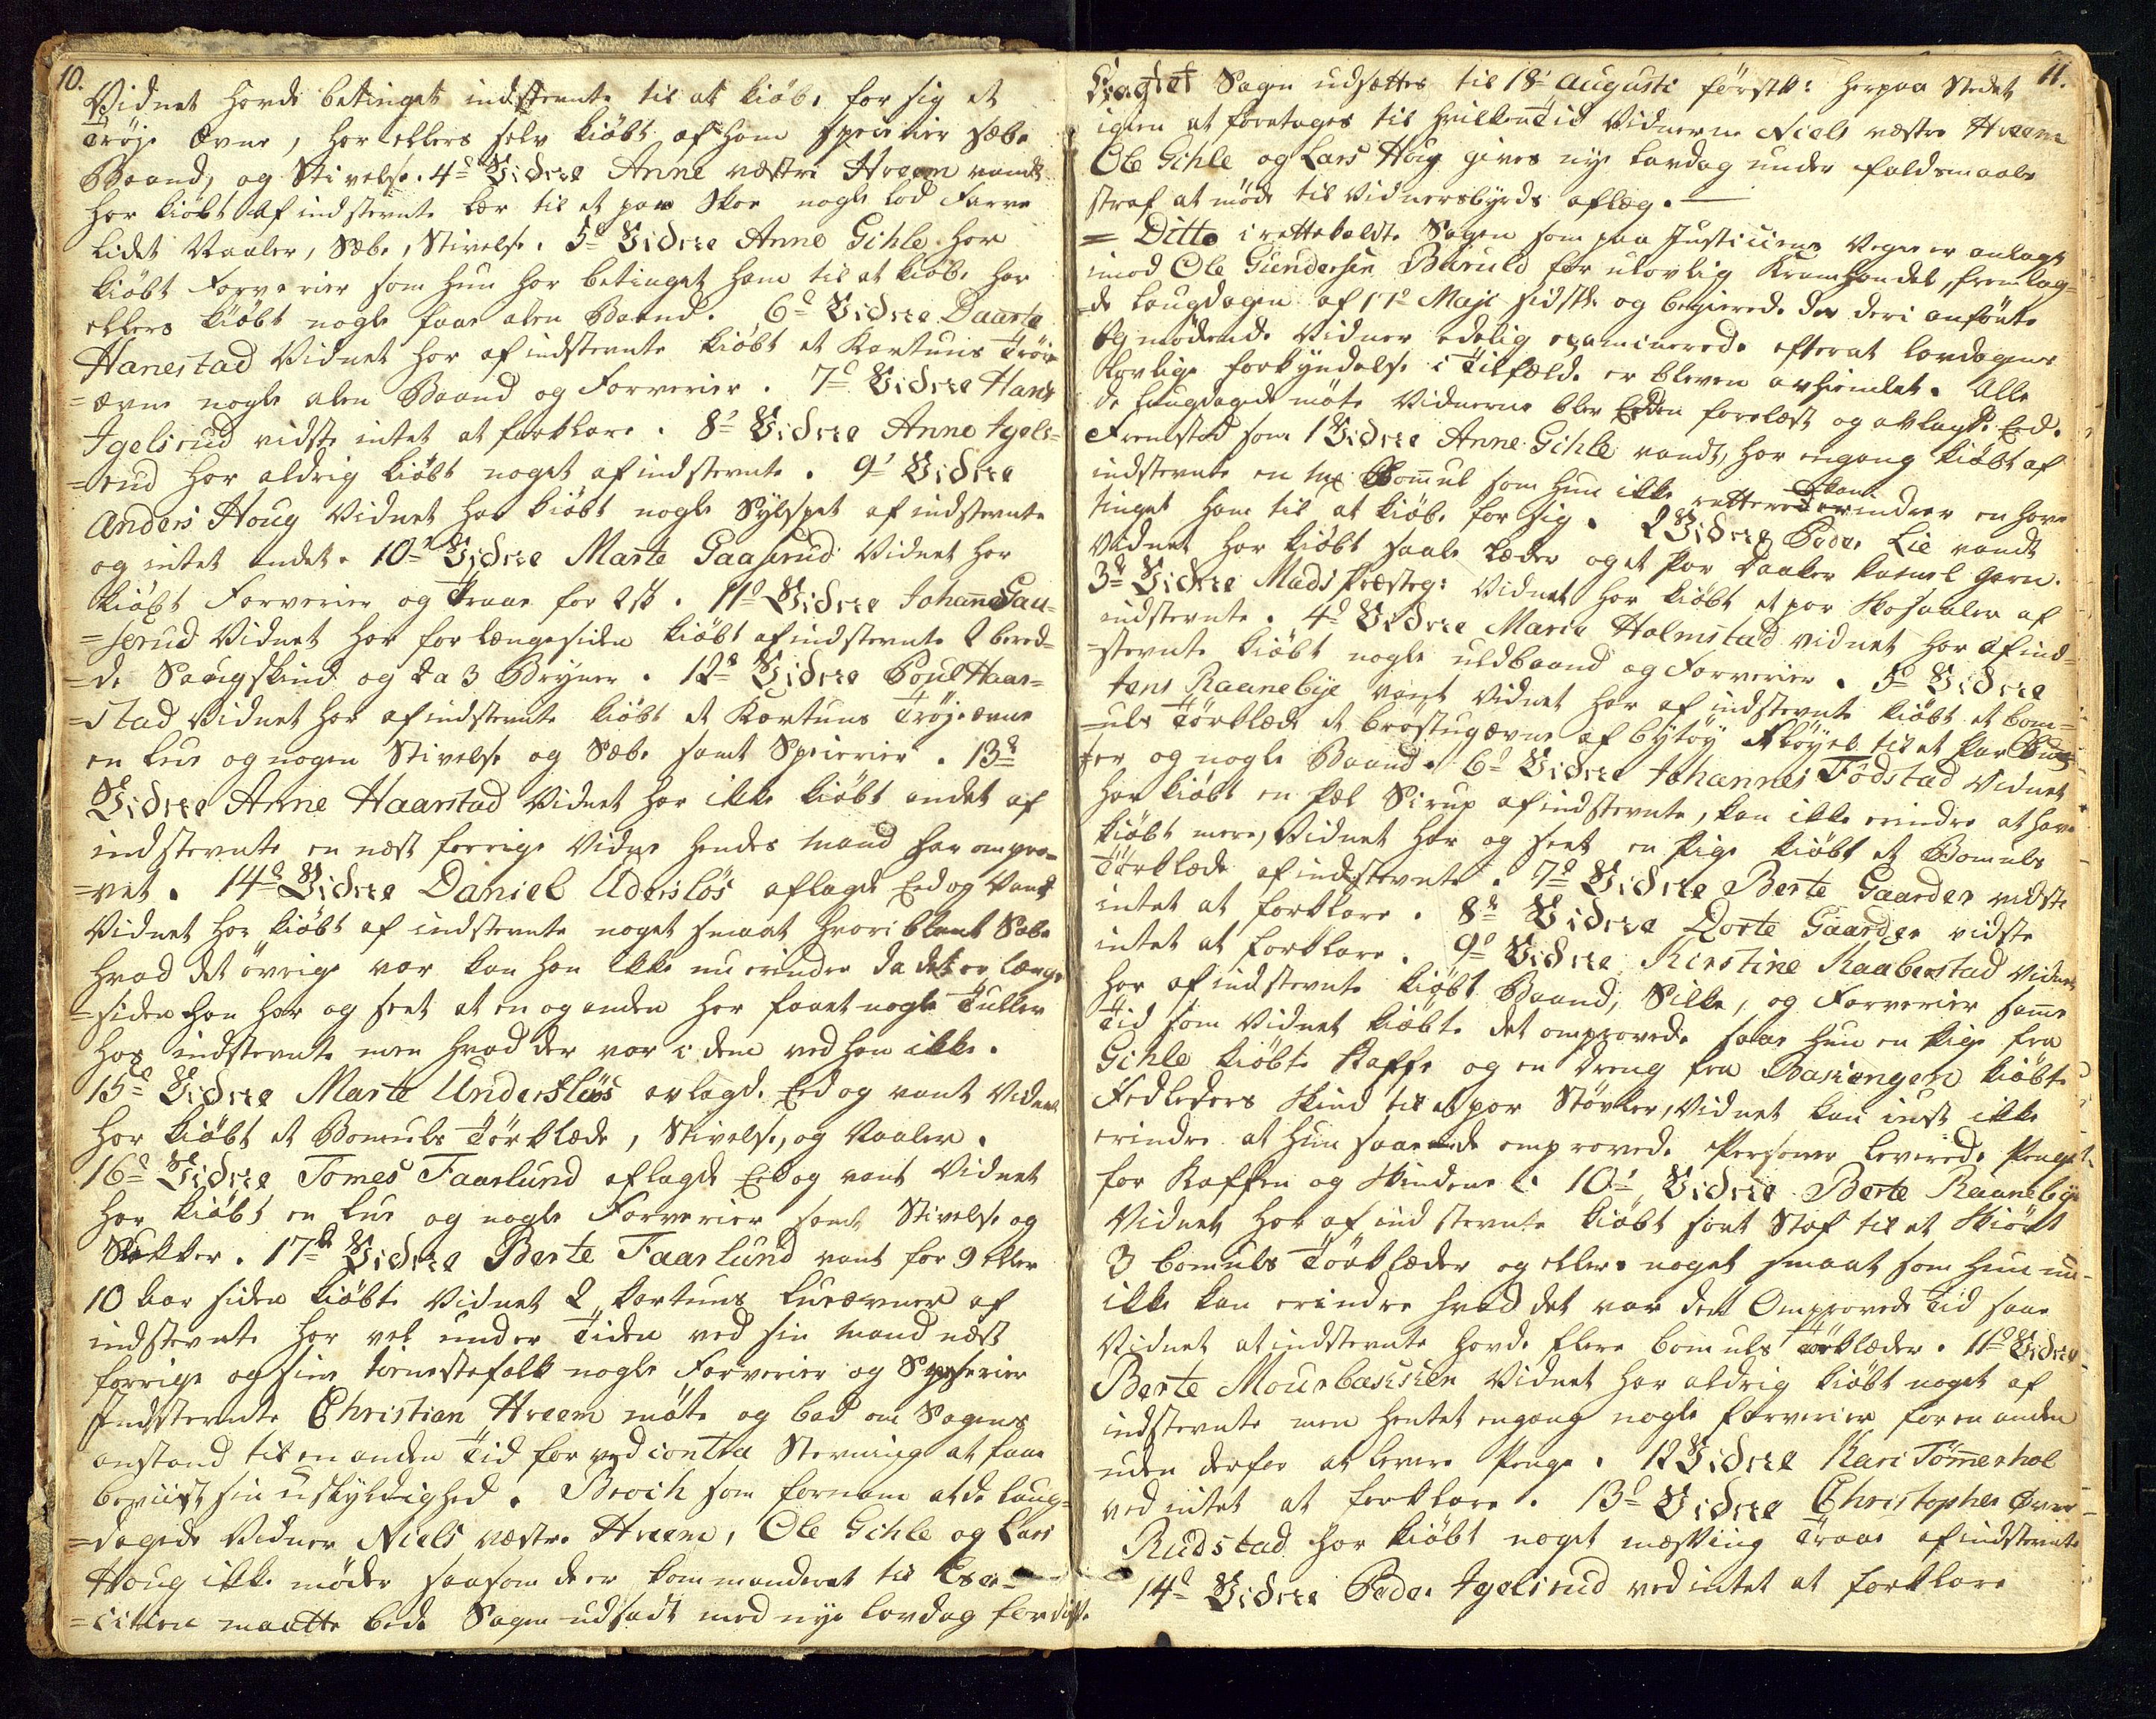 10.
Vidnet havde betinget indstevnte til at kiøbe for sig et
Trøje Ævne, har ellers selv kiøbt af ham Speserier Sæbe
Baand, og Stivelse. 4de Vidne Anne væstre Hreem vandt
har kiøbt af indstevnte Lær til et par Skoe nogle lod Farve
lidet Naaler, Sæbe, Stivelse. 5te Vidne Anne Gihle har
kiøbt Farverier som hun har betinget ham til at kiøbe har
ellers kiøbt nogle faae alen Baand. 6te Vidne Daarte
Hanestad Vidnet har af indstevnte kiøbt et Kartuns Trøie
=ævne nogle alen Baand og Farverier. 7de Vidne Hans
Igelsrud vidste intet at forklare. 8de Vidne Anne Igels=
=rud har aldrig kiøbt noget af indstevnte. 9de Vidne
Anders Houg Vidnet har kiøbt nogle Sylspet af indstevnte
og intet andet. 10de Vidne Marte Gaaserud Vidnet har
kiøbt Farverier og Traae for 2 s. 11te Vidne Johanne Gaa=
=serud Vidnet har for længe siden kiøbt af indstevnte 2 bered=
=de Saugskind og 2 a 3 Bryner. 12te Vidne Poul Haar=
=stad Vidnet har af indstevnte kiøbt et Kartuns Trøjeævne
en Lue og nogen Stivelse og Sæbe samt Speserier. 13de
Vidne Anne Haarstad Vidnet har ikke kiøbt andet af
indstevnte en næst forrige Vidne hendes Mand har ompro=
=vet. 14de Vidne Daniel Undersløs aflagde Eed og Vandt
Vidnet har kiøbt af indstevnte noget smaat hvoriblant Sæbe
hvad det øvrige var kan han ikke nu erindre da det er længe
=siden han har og seet at en og anden har faaet nogle Tuller
hos indstevnte men hvad der var i dem ved han ikke.
15de Vidne Marte Undersløs avlagde Eed og vant Vidnet
har kiøbt et Bomuls Tørklæde, Stivelse, og Naaler.
16de Vidne Tomes Faarlund aflagde Eed og vant Vidnet
har kiøbt en Lue og nogle Farverier samt Stivelse og
Sukker. 17de Vidne Berte Faarlund vant for 9 eller
10 Aar siden kiøbte Vidnet 2 Kartuns Lueævner af
indstevnte har vel under Tiden ved sin Mand næst
forrige og sine tienestefolk nogle Farverier og Speserier
Indstevnte Christian Hreem møte og bad om Sagens
anstand til en anden Tid for ved contra Stevning at faae
beviist sin uskyldighed. Broch som fornam at de laug=
=dagede Vidner Niels væstre Hreem, Ole Gihle og Lars
Houg ikke møder saasom de er kommanderet til Exer=
=citien maatte bede Sagen udsadt med nye lavdag for disse
11.
Eragtet Sagen udsættes til 18de Augusti førstk: herpaa Stedet
igien at foretages til hvilken Tid Vidnerne Niels væstre Hreem
Ole Gihle og Lars Houg gives nye lavdag under faldsmaals
straf at møde til Vidnersbyrds aflæg.
= Ditto i rettekaldte Sagen som paa Justiciens Vegne er anlagt
imod Ole Gundersen Baruld for ulovlig Kramhandel, fremlag=
=de laugdagen af 17de Maji sidstl: og begierede de deri anførte
og mødende Vidner edelig examinerede efterat lavdagens
lovlige forkyndelse i Tilfælde er bleven avhiemlet. Alle
de laugdagede møte Vidnerne blev Eeden forelæst og avlagde Eed.
Fremstod som 1 Vidne Anne Gihle vandt, har engang kiøbt af
indstevnte en Bomul som hun ikke rettere kan erindrer en have
tinget ham til at kiøbe for sig. 2 Vidne Peder Lie vandt
Vidnet har kiøbt saale Læder og et Par Daaler Kamel Garn.
3de Vidne Mads Præsteg: Vidnet har kiøbt et par Skosaaler af
indstevnte. 4de Vidne Maria Holmstad vidnet har af ind=
=stevnte kiøbt nogle uldbaand og Farverier. 5te Vidne
Jens Raanebye vant Vidnet har af indstevnte kiøbt et bom=
=uls Tørklæde et brøstugævne af bytøy Fløyel til et par Bux
=er og nogle Baand. 6te Vidne Johannes Fødstad Vidnet
har kiøbt en Pæl Sirup af indstevnte, kan ikke erindre at have
kiøbt mere, Vidnet har og seet en Pige kiøbt et Bomuls
Tørklæde af indstevnte. 7de Vidne Berte Gaarder vidste
intet at forklare. 8de Vidne Dorte Gaarder vidste
intet at forklare. 9de Vidne Kirstine Kaaberstad Vidnet
har af indstevnte kiøbt Baand, Silke, og Farverier samme
Tid som Vidnet kiøbte det omprovede saae hun en Pige fra
Gihle kiøbte Kaffe og en dreng fra Basiengen kiøbte
Fedleders Skind til et par Støvler, Vidnet kan iust ikke
erindre at hun saae de omprovede Personer leverede Penge
for Kaffen og Skindene. 10de Vidne Berte Raanebye
Vidnet har af indstevnte kiøbt sort Stof til et Skiørt
3 bomuls Tørklæder og ellers noget smaat som hun nu
ikke kan erindre hvad det var den Omprovede Tid saae
Vidnet at indstevnte havde flere bomuls Tørklæder. 11te Vidne
Berte Mourbaschien Vidnet har aldrig kiøbt noget af
indstevnte men hentet engang nogle farverier for en anden
uden derfor at levere Penge. 12 Vidne Kari Tømmerhol
ved intet at forklare. 13de Vidne Christopher Øver
Rudstad har kiøbt noget mæssing Traae af indstevnte
14de Vidne Peder Igelsrud ved intet at forklare